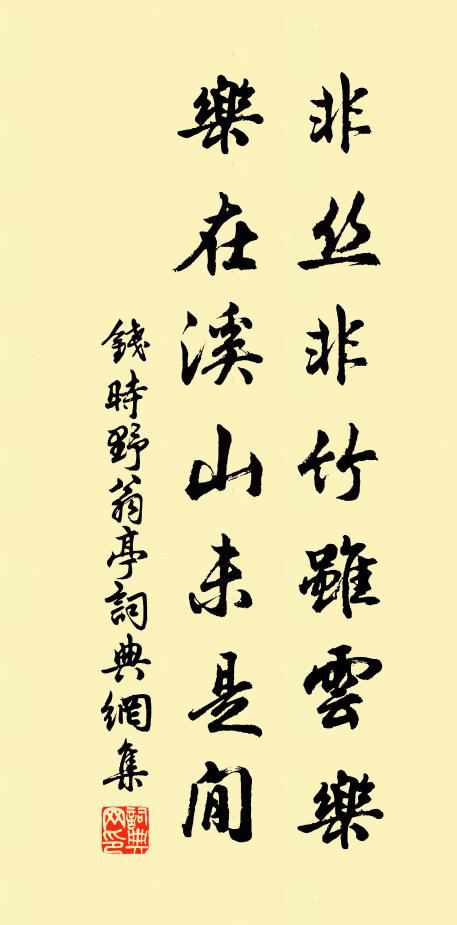 非丝非竹雖雲樂
樂在溪山未是閒
錢時野翁亭詞典網集
詞典网印